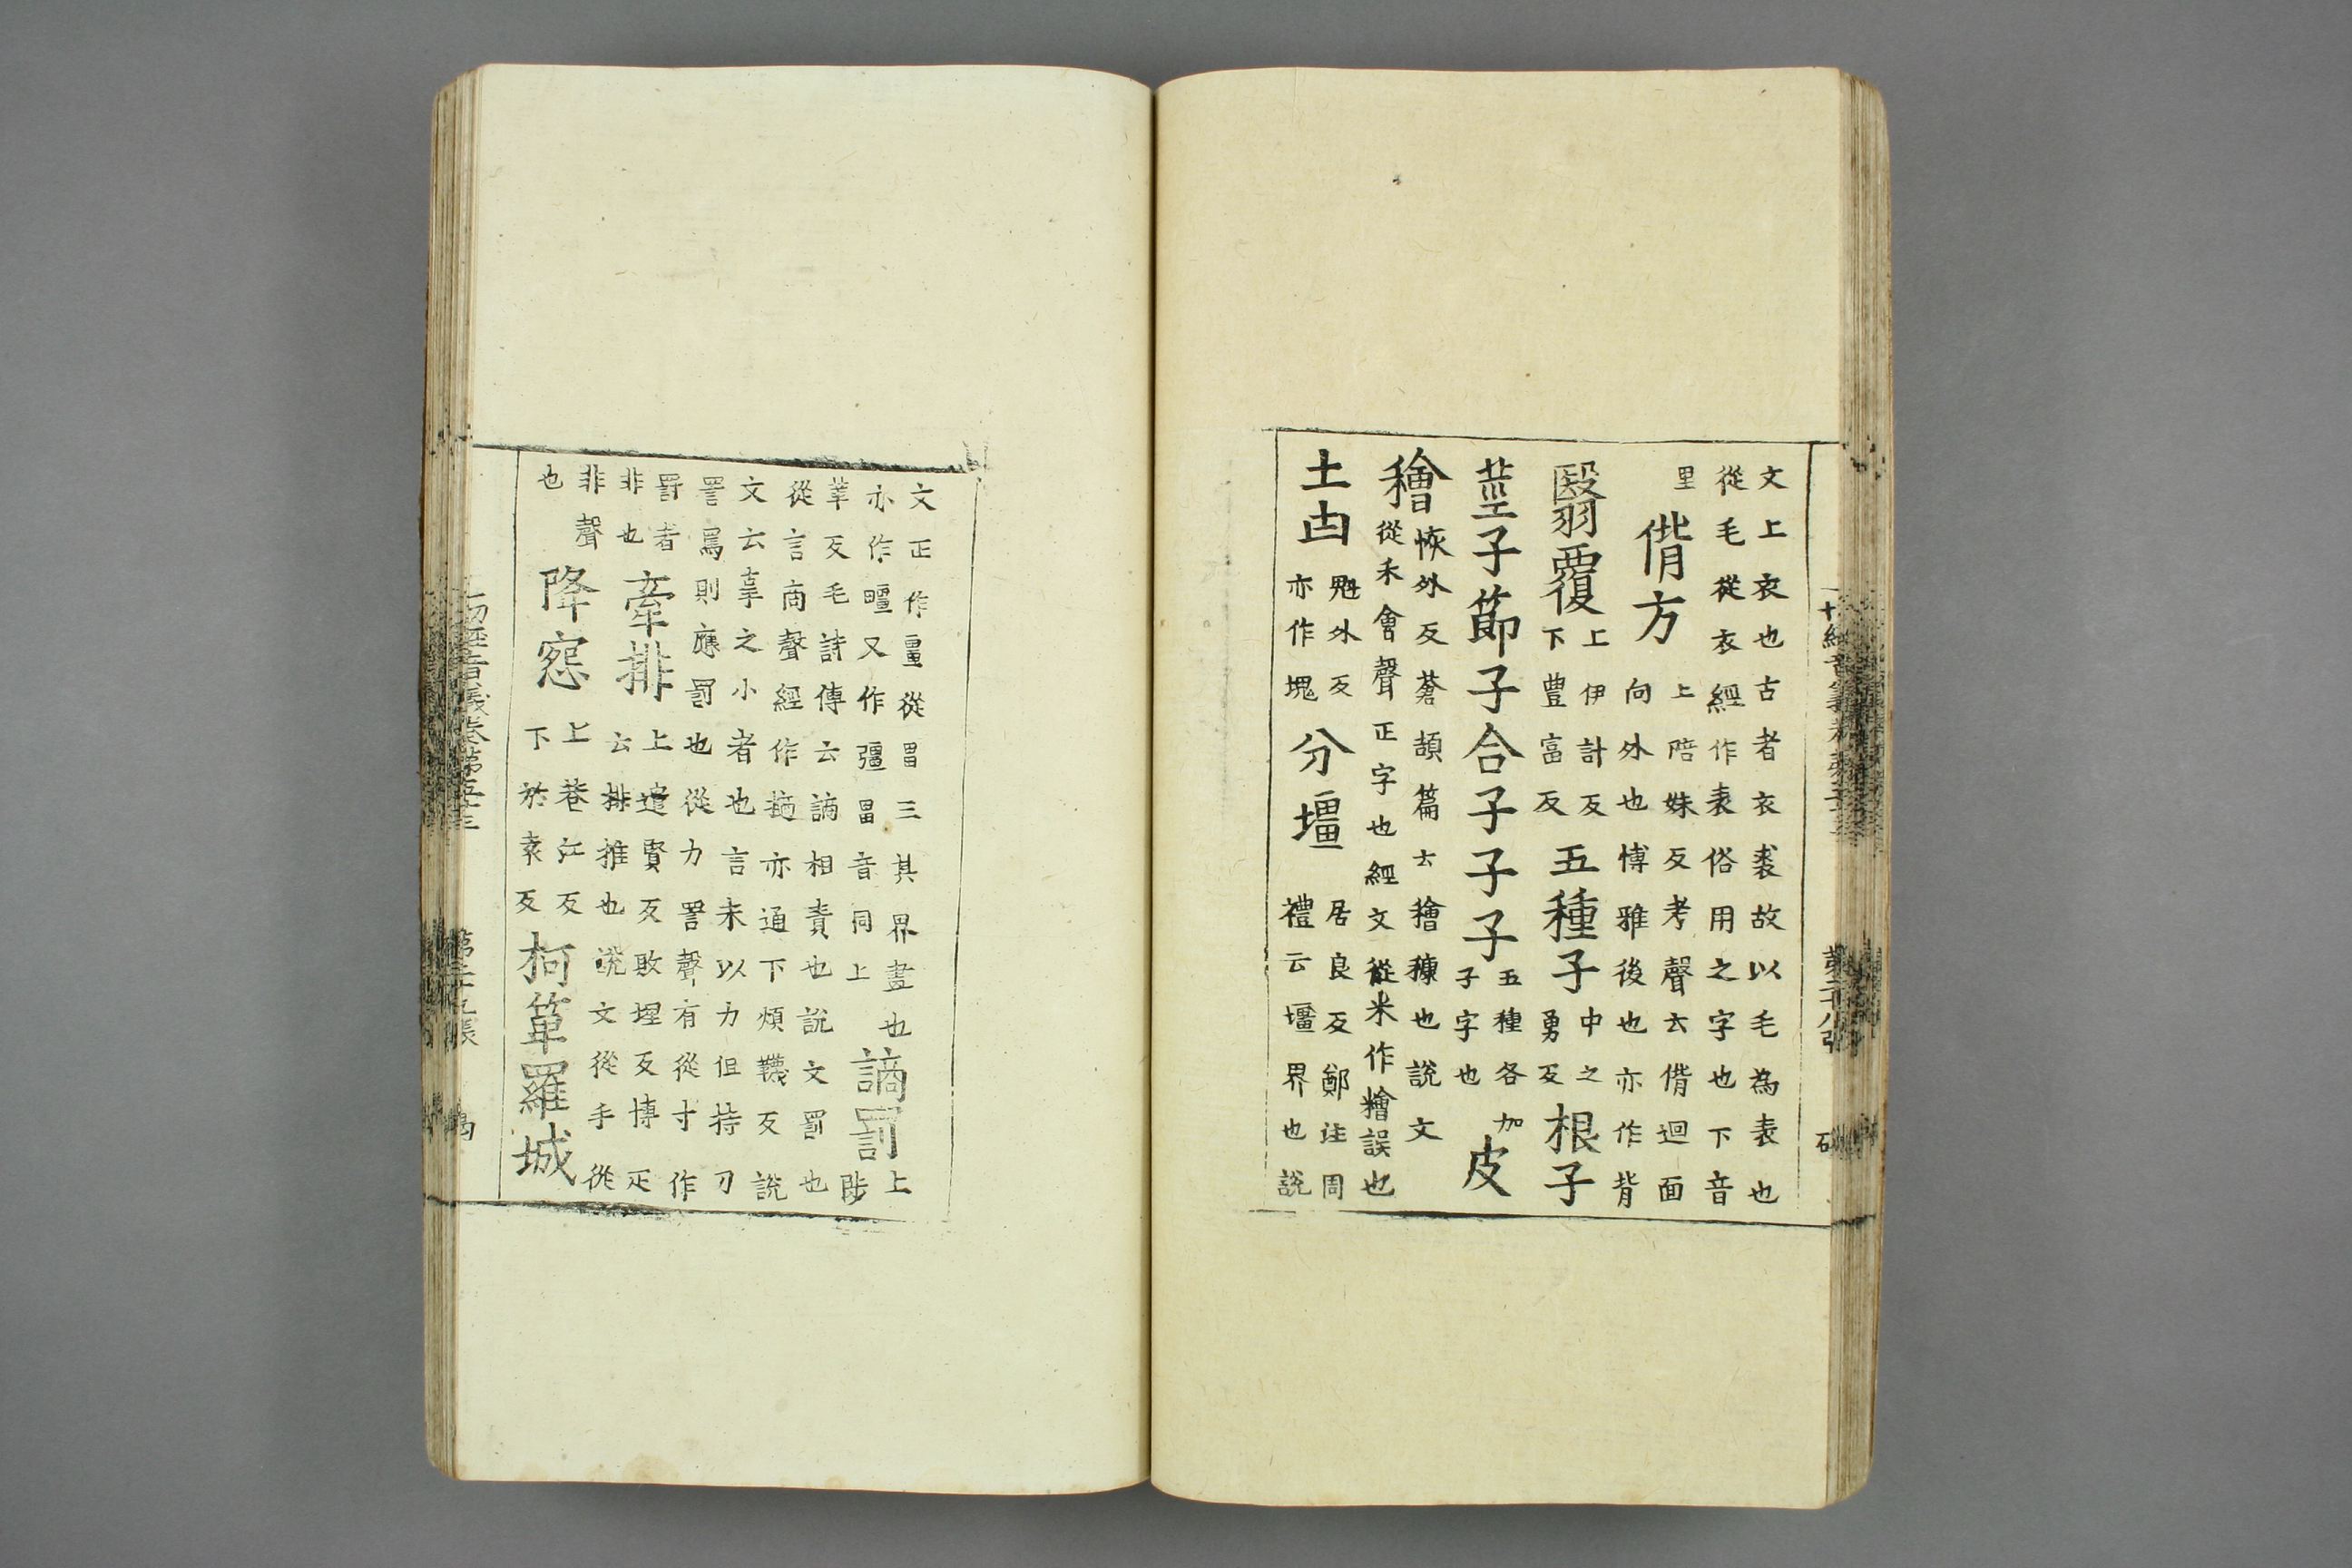 文上衣也古者衣裘故以毛為表也
從毛從衣經作表俗用之字也下音
里
偝方
上陪妹反考聲云偝迴面
向外也博雅後也亦作背
翳覆
上伊計反
下豊富反
五種子
中之
勇反
根子
莖子節子合子子子
五種各加
子字也
皮
穭
恢外反蒼頡篇云穭穅也說文
從禾會聲正字也經文從米作䊠誤也
土凷
魁外反
亦作塊
分壃
居良反鄭注周
禮云壃界也說
文正作畺從畕三其界畫也
亦作疆又作彊畕音同上
謫罰
上陟
革反毛詩傳云謫相責也說文罰也
從言啇聲經作讁亦通下煩韈反說
文云辠之小者也言未以力但持刀
詈罵則應罰也從力詈聲有從寸作
罸者非也
牽排
上遣賢反敗埋反博疋
云排推也說文從手從
非聲也
降怨
上巷江反
下於袁反
柯箄羅城